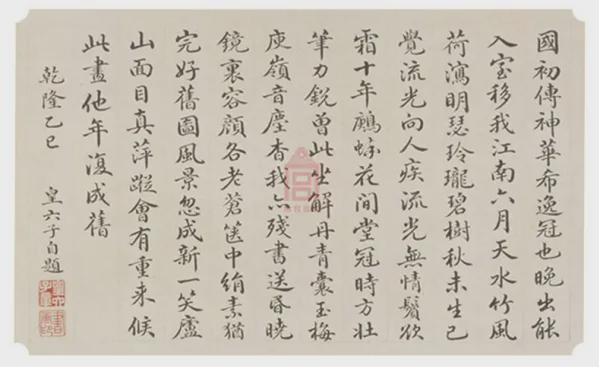 國初傳神華希逸冠也晚出能
入室移我江南六月天水竹風
荷瀉明瑟玲瓏碧樹秋未生已
覺流光向人疾流光無情鬢欲
霜十年花間堂冠時方壯
筆力銳曾此坐解丹青囊玉梅
庾嶺音塵杳我亦殘書送昏曉
鏡裏容顏各老蒼篋中絹素猶
完好舊圖風景忽成新一笑廬
山面目真萍蹤會有重来候
此畫他年復成舊
乾隆乙巳 皇六子自題